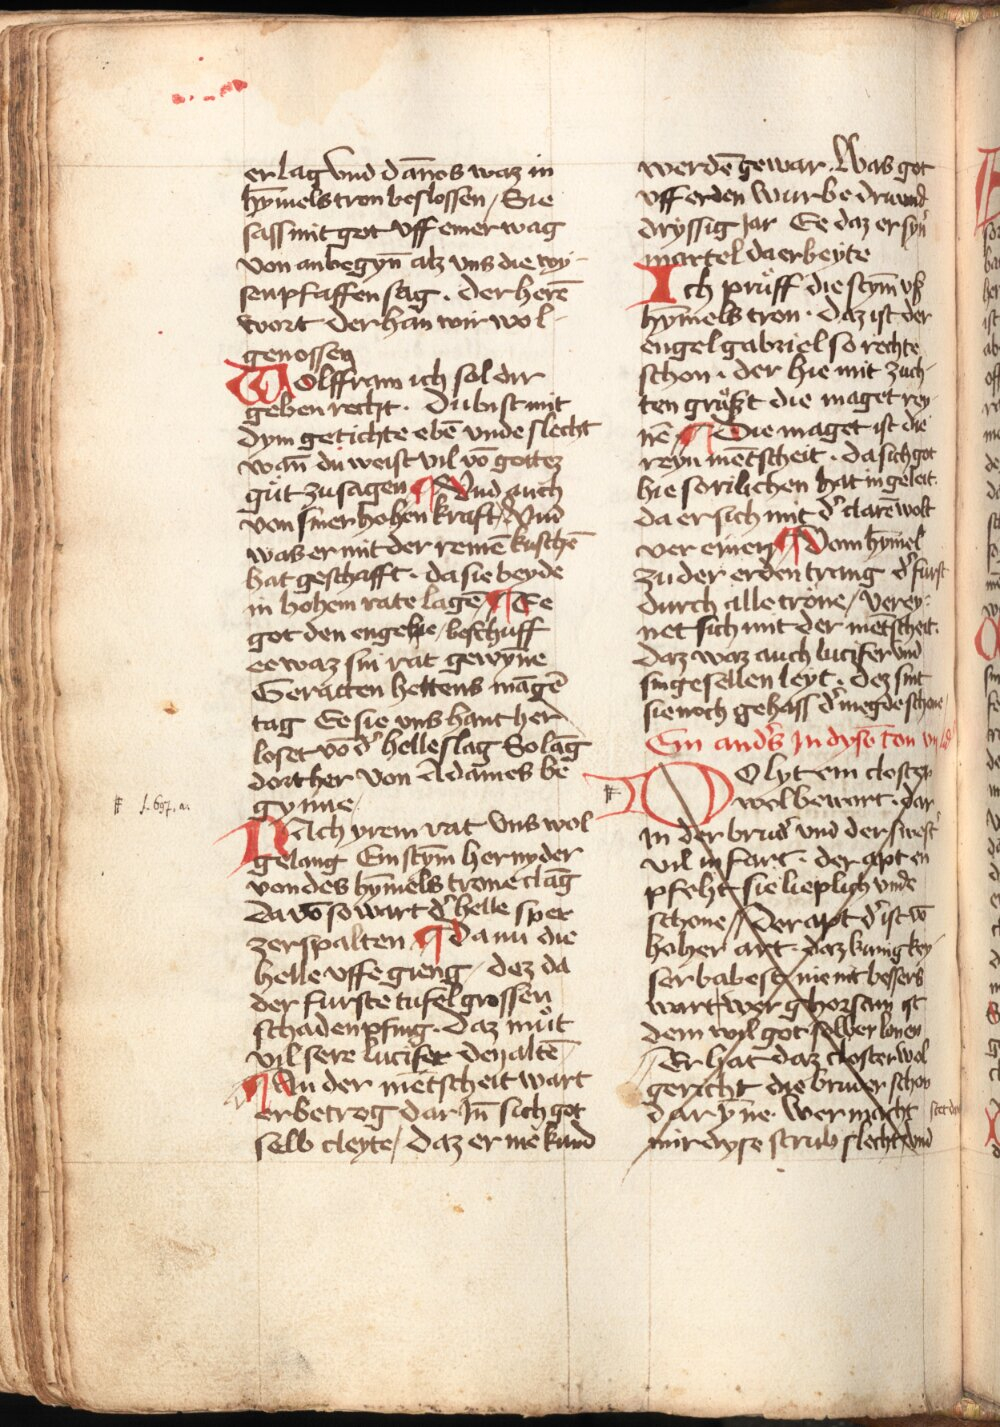 er lag vnd dānos waz in
hȳmels tron beslossen / Sie
sass mit got vff einer wag
von anbegyn̄ alz vns die wy-
sen pfaffen sag . der herē
wort der han wir wol-
genossen
Wolffram ich sol dir
geben recht . Du bist mit
dym getichte ebē vnde slecht
wan̄ du weist vil vō gottez
gůt zu sagen ¶ Vnd auch
von siner hohen kraft / Vnd
was er mit der reinē kuschē
hat geschafft . da sie beyde
in hohem rate lagē ¶ Ee
got den engel ie / beschuff
ee waz sin rat gewyn̄e
Geratten hettens māgē
tag Ee sie vns hant her
loset vō dʾ helle slag So lāg
dort her von Adames be
gynne
NAch yrem rat vns wol
gelang Ein stȳm her nyder
von des hȳmels trone clāg
Da vō so wart dʾ helle sper
zerspalten ¶ Da nu die
helle vffe gieng / dez da
der furste tufel grossen
schaden pfing . Daz můt
vil sere lucifer den altē
¶ An der mētscheit wart
er betrog dar In̄ sich got
selb cleyte / daz er nie kund
werdē gewar . Was got
vff erden wurbe dru vnd
dryssig Jar Ee daz er syn̄
martel da erbeyte
Ich průff die stȳm vß
hȳmels tron . daz ist der
engel gabriel so rechte
schon . der hie mit zuch-
ten grůßt die maget rey
nē ¶ Die maget ist die
reyn mētscheit . da sich got
hie sorilichen hat in geleit .
da er sich mit dʾ clarē wolt
ver einen ¶ Vom hȳmel
zu der erden trang dʾ furst
durch alle tröne / verey-
net sich mit der mētscheit .
daz waz auch lucifer vnd
sin gesellen leyt . dez sint
sie noch gehass dʾ megde schone
Ein andʾs In dysē ton
DO lyt ein closter
wol bewart . dar
In der brudʾ vnd der swestʾ
vil in fart . der apt en
pfeht sie lieplich vnde
schone // Der apt dʾ ist vō
hoher art . daz kunig key
ser babest nie nit bessers
wart wer ghorsam ist
dem wil got selber lonen
// Er hat daz closter wol
gericht die bruder schon
dar ȳne . Wer macht
mir dyse strub slecht / vnd
f. 697. a.